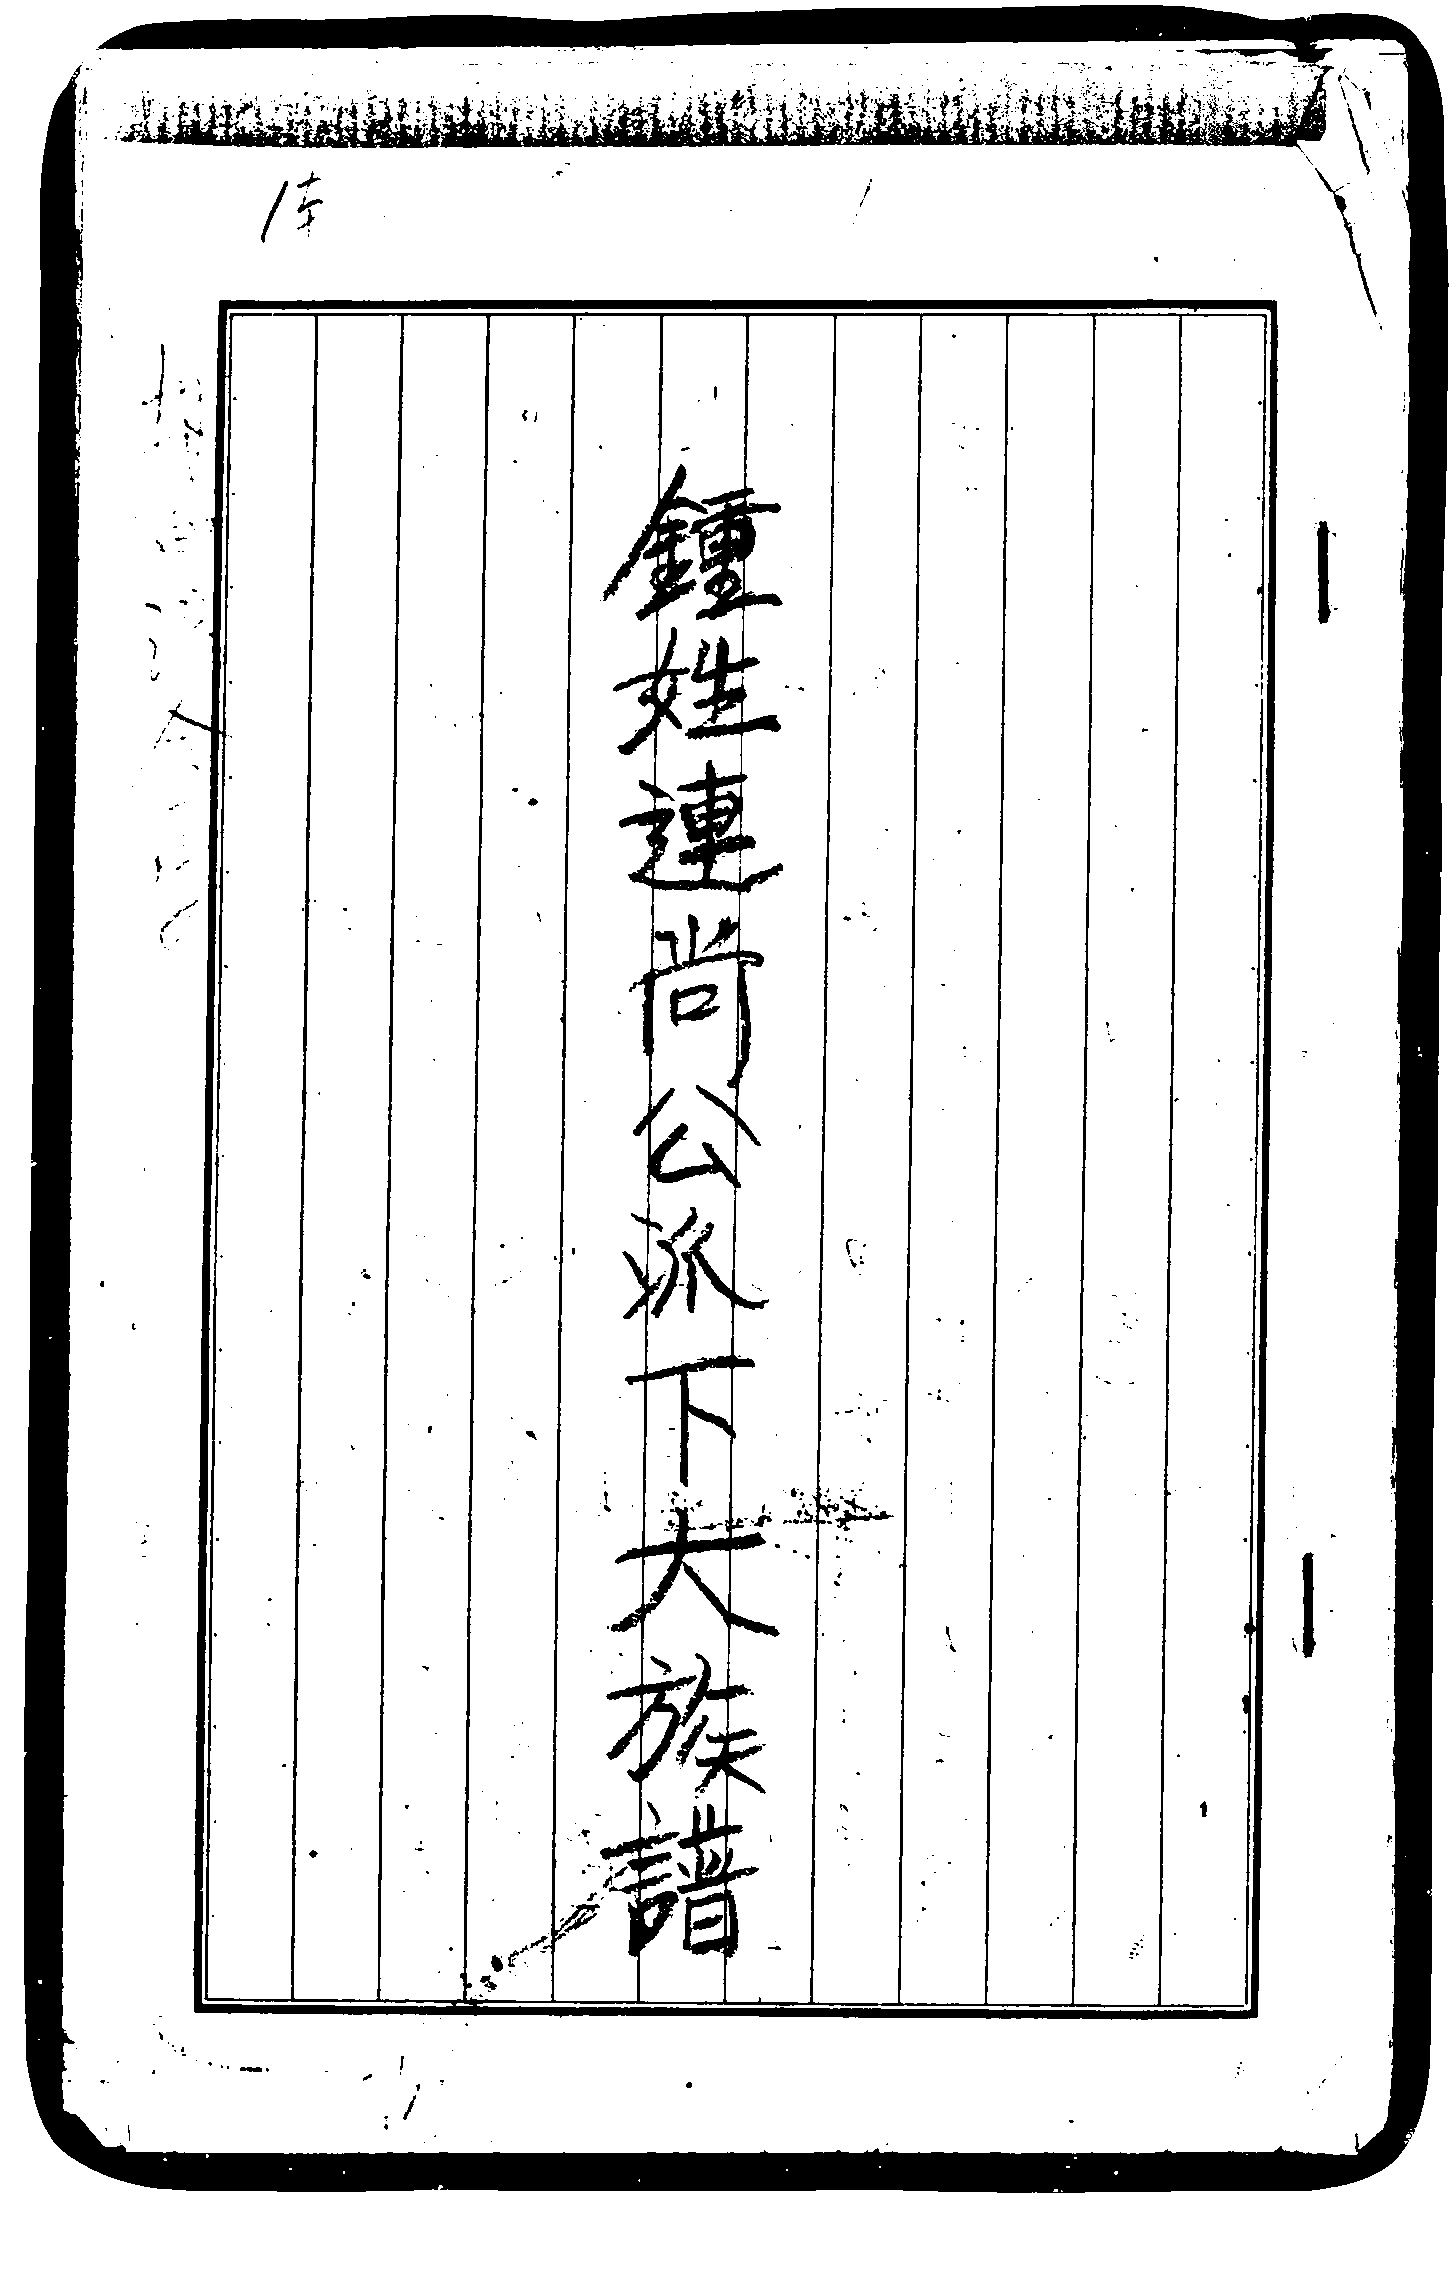 鍾姓連尚公派下大族譜